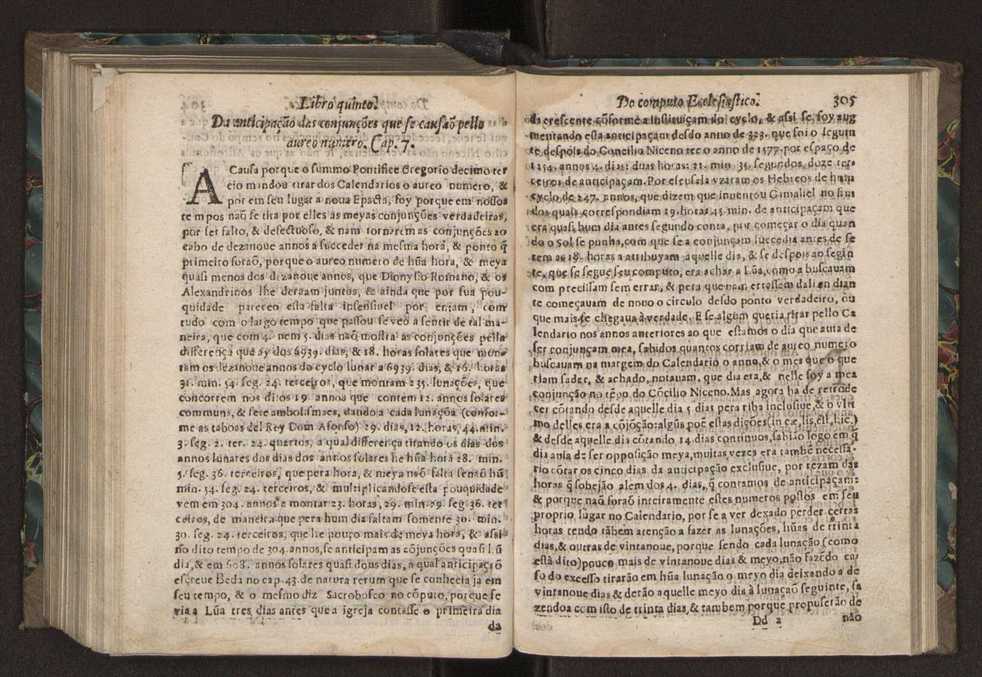 Libro quinto.
Da anticipação das conjunções que se causaõ pello
aureo numero. Cap. 7.
A Causa porque o summo Pontifice Gregorio decimo ter
cio mandou tirar dos Calendarios o aureo numero, &
por em seu lugar a noua Epacta, foy porque em nossos
tempos naõ se tira por elles as meyas conjunções verdadeiras,
por ser falto, & defectuoso, & nam tornarem as conjunções ao
cabo de dezanoue annos a succeder na mesma hora, & ponto q̃
primeiro foraõ, porque o aureo numero de hũa hora, & meya
quasi menos dos dizanoue annos, que Dionysio Romano, & os
Alexandrinos lhe deraam juntos, & ainda que por sua pou-
quidade pareceo esta falta insensiuel por entam, com
tudo com o largo tempo que passou se veo a sentir de tal ma-
neira, que com 4. nem 5. dias naõ mostra as conjunções pella
differença que ay dos 6939. dias, & 18. horas solares que mon-
tam os dezanoue annos do cyclo lunar a 6939. dias, & 16. horas
31. min. 54. seg. 24. terceiros, que montam 235. lunações, que
concorrem nos ditos 19. annos que contem 12. annos solares
communs, & sete ambolismaes, dando a cada lunaçoa (confor-
me as taboas del Rey Dom Afonso) 29. dias, 12. horas, 44. min.
3. seg. 2. ter. 24. quartos, a qual differença tirando os dias dos
annos lunares dos dias dos annos solares he hũa hora 28. min.
5. seg. 36. terceiros, que pera hora, & meya naõ falta senaõ hũ
min. 54. seg. 24. terceiros, & multiplicandose esta pouquidade
vem em 304. annos a montar 23. horas, 29. min. 29. seg. 36. ter
ceiros, de maneira que pera hum dia faltam somente 30. min.
30. seg. 24. terceiros, que he pouco mais de meya hora, & assi
no dito tempo de 304. annos, se anticipam as cõjunções quasi hũ
dia, & em 608. annos solares quasi dous dias, a qual anticipaçaõ
escreue Beda no cap. 43. de natura rerum que se conhecia ja em
seu tempo, & o mesmo diz Sacrobosco no cõputo, porque se
via a Lũa tres dias antes que a igreja contasse o primeiro dia
da
Do computo Ecclesiastico. 305
da crescente cõforme a instituiçam do cyclo, & assi se foy aug
mentando esta anticipaçam desdo anno de 323. que foi o seguin
te despois do Concilio Niceno tee o anno de 1577. por espaço de
1254. annos 4. dias: duas horas: 21. min. 35. segundos, doze ter-
ceiros de anticipaçam. Por esta falta vzaram os Hebreos de hum
cyclo de 247. annos, que dizem que inuentou Gamaliel no fim
dos quais correspondiam 19. horas 45. min. de anticipaçam que
era quasi hum dia antes segundo conta, por começar o dia quan
do o Sol se punha, com que se a conjunçam succedia antes de se
tem as 18. horas a atribuyam aquelle dia, & se despois ao seguin
te, que se segue seu computo, era achar a Lũa, como a buscauam
com precissam sem errar, & pera que nam errassem dali en dian
te começauam de nouo o circulo desdo ponto verdadeiro, ou
que mais se chegaua à verdade. E se algum queria tirar pello Ca
lendario nos annos anteriores ao que estamos o dia que auia de
ser conjunçam mea, sabidos quantos corriam de aureo numero
buscauam na margem do Calendario o anno, & o mes que o que
riam saber, & achado, notauam, que dia era, & nelle foy a mea
conjunção no tẽpo do Cõcilio Niceno. Mas agora ha de retrode
cer cõtando desde aquelle dia 5 dias pera riba inclusiue, & o vlti
mo delles era a cõjõçaõ: algũs poẽ estas dições (in cæ, lis, est, hic,)
& desde aquelle dia cõtando 14. dias continuos, sabiaõ logo em q̃
dia auia de ser opposição meya, muitas vezes era tambẽ necessa-
rio cõtar os cinco dias da anticipação exclusiue, por rezam das
horas q̃ sobejão alem dos 4. dias, q̃ contamos de anticipaçam:
& porque naũ foraõ inteiramente estes numeros postos em seu
proprio lugar no Calendario, por se a ver dexado perder certas
horas tendo tãbem atenção a fazer as lunações, hũas de trinta
dias, & outras de vintanoue, porque sendo cada lunação (como
està dito) pouco mais de vintanoue dias & meyo, não fazẽdo ca
so do excesso tirarão em hũa lunação o meyo dia deixando a de
vintanoue dias & derão aquelle meyo dia à lunaçaõ seguinte, fa
zendoa com isto de trinta dias, & tambem porque propuserão de
Dd 2 não